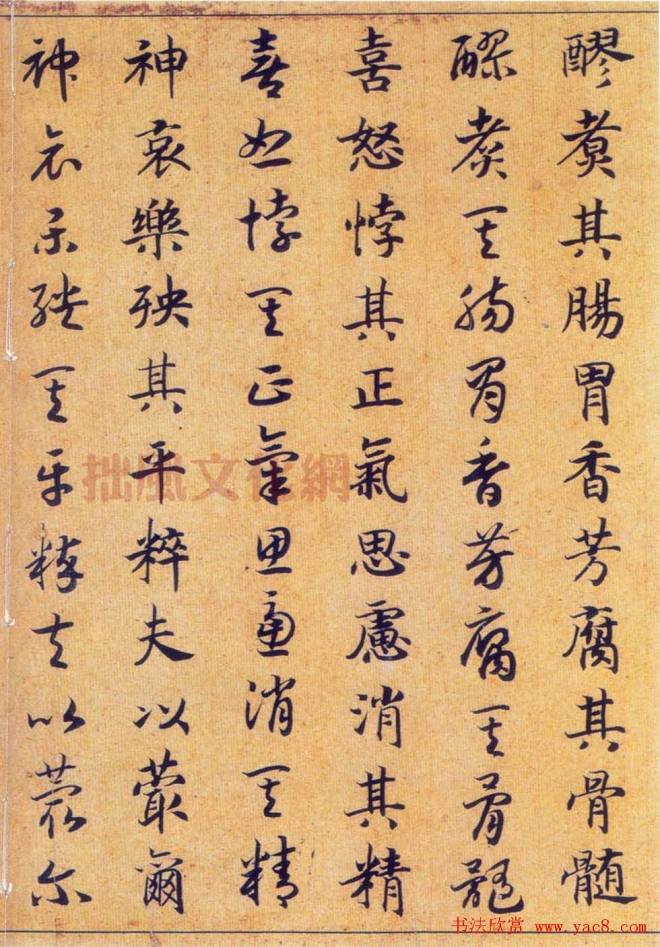 醪煑其腸胃香芳腐其骨髓
醪煑其腸胃香芳腐其骨髓
喜怒悖其正氣思慮消其精
喜怒悖其正氣思慮消其精
神哀樂殃其平粹夫以蕞爾
神哀樂殃其平粹夫以蕞爾
拙風文化網
书法欣赏 www.yac8.com